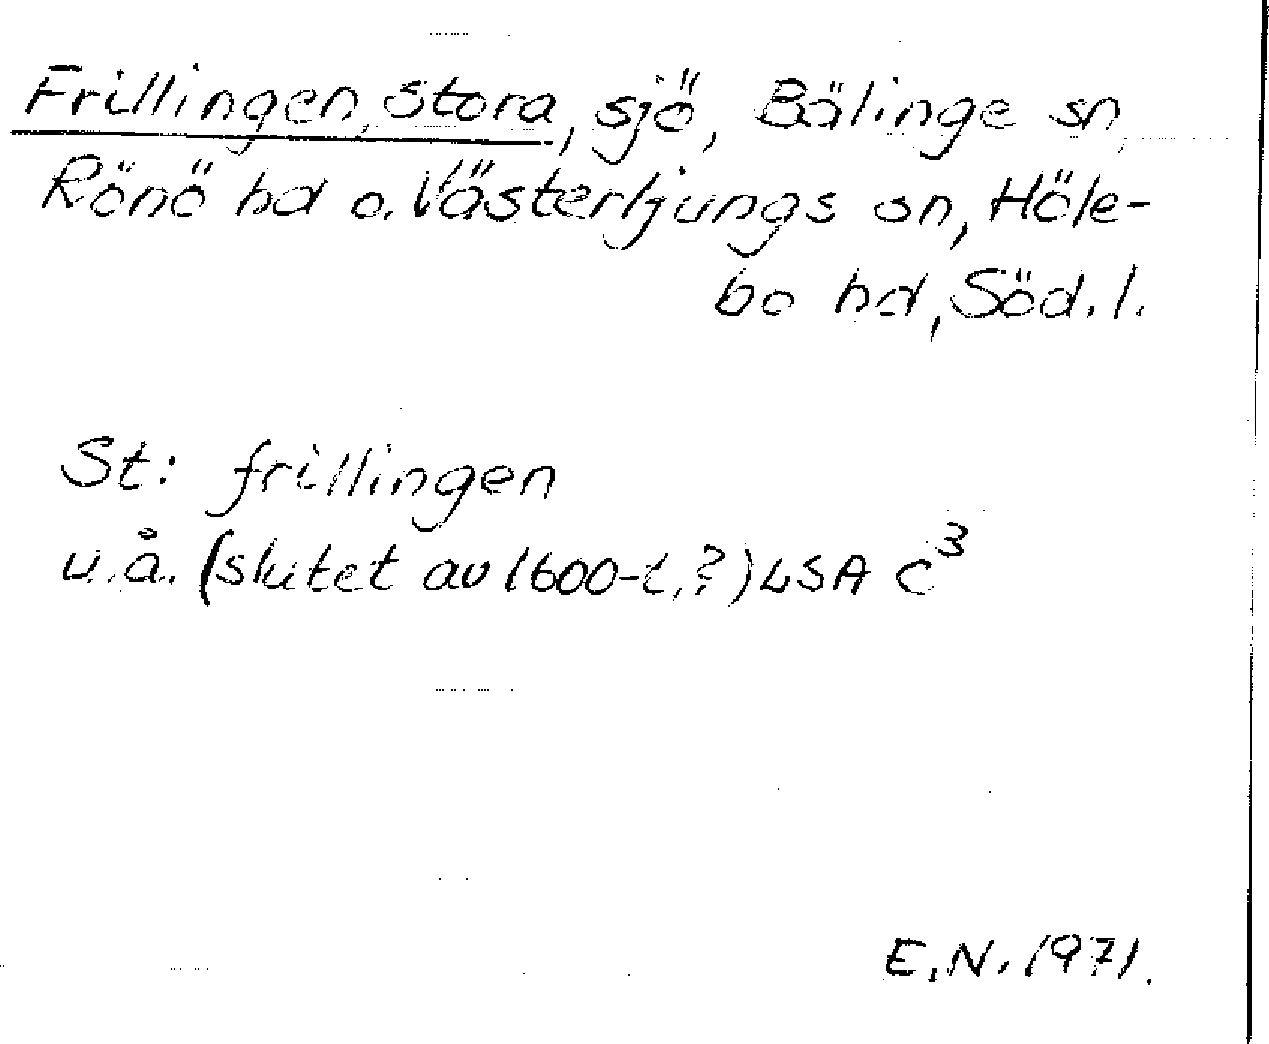 Frillingen, stora, sjö, Bälinge sn,
Rönö hd o. Västerljungs sn, Höle-
bo hd, Söd. l.
St: frillingen
u.å. (slutet av 1600-t.?) LSA C³
E.N. 1971.